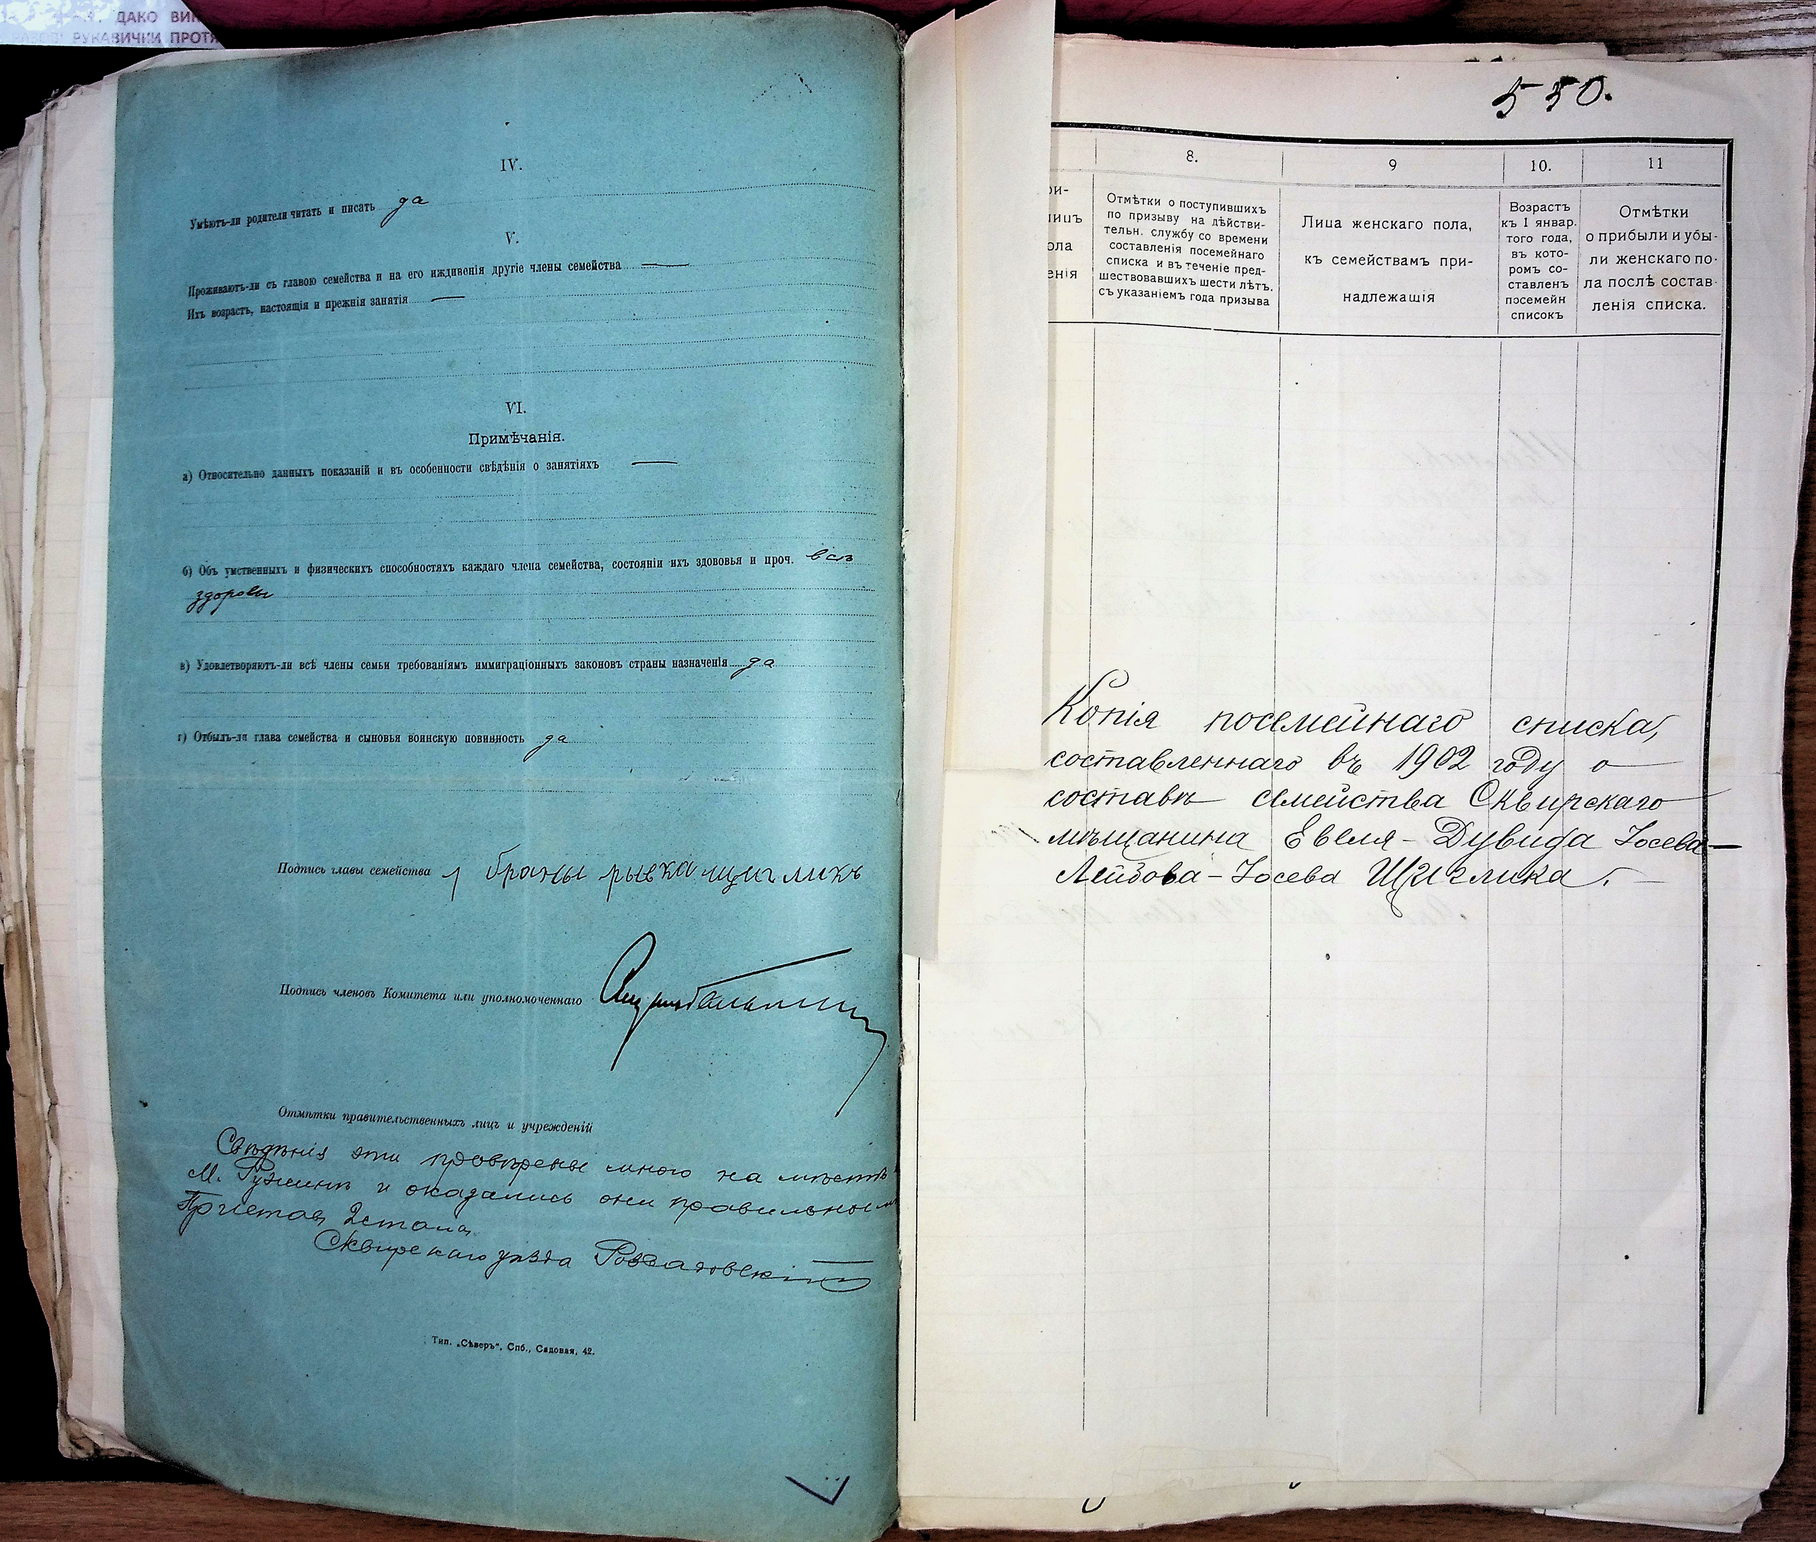 ДАКО ВИК
РУКАВИЧКИ ПРОТЯ
IV.
Умѣютъ-ли родители читать и писать да
V.
Проживаютъ-ли съ главою семейства и на его иждивенія другіе члены семейства —
Ихъ возрастъ, настоящія и прежнія занятія —
VI.
Примѣчанія.
а) Относительно данныхъ показаній и въ особенности свѣдѣнія о занятіяхъ —
б) Объ умственныхъ и физическихъ способностяхъ каждаго члена семейства, состояніи ихъ здововья и проч. всѣ
здоровы
в) Удовлетворяютъ-ли всѣ члены семьи требованіямъ иммиграціонныхъ законовъ страны назначенія да
г) Отбылъ-ли глава семейства и сыновья воинскую повинность да
Подпись главы семейства рывка щигликъ
Подпись членовъ Комитета или уполномоченнаго
Отмѣтки правительственныхъ лицъ и учрежденій
Свѣдѣнія эти провѣрены мною на мѣстѣ
М. Ружинѣ и оказались они правильными
Приставъ 2 стана
Сквирскаго уѣзда
Тип. „Сѣверъ", Спб., Садовая, 42.
550.
8.
9
10.
11
Отмѣтки о поступившихъ
по призыву на дѣйстви-
тельн. службу со времени
составленія посемейнаго
списка и въ теченіе пред-
шествовавшихъ шести лѣтъ,
съ указаніемъ года призыва
Лица женскаго пола,
къ семействамъ при-
надлежащія
Возрастъ
къ I январ.
того года,
въ кото-
ромъ со-
ставленъ
посемейн
списокъ
Отмѣтки
о прибыли и убы-
ли женскаго по-
ла послѣ состав-
ленія списка.
Копія посемейнаго списка,
составленнаго въ 1902 году о
составѣ семейства Сквирскаго
мѣщанина Евеля-Дувида Іосева-
Лейбова-Іосева Щиглика. —